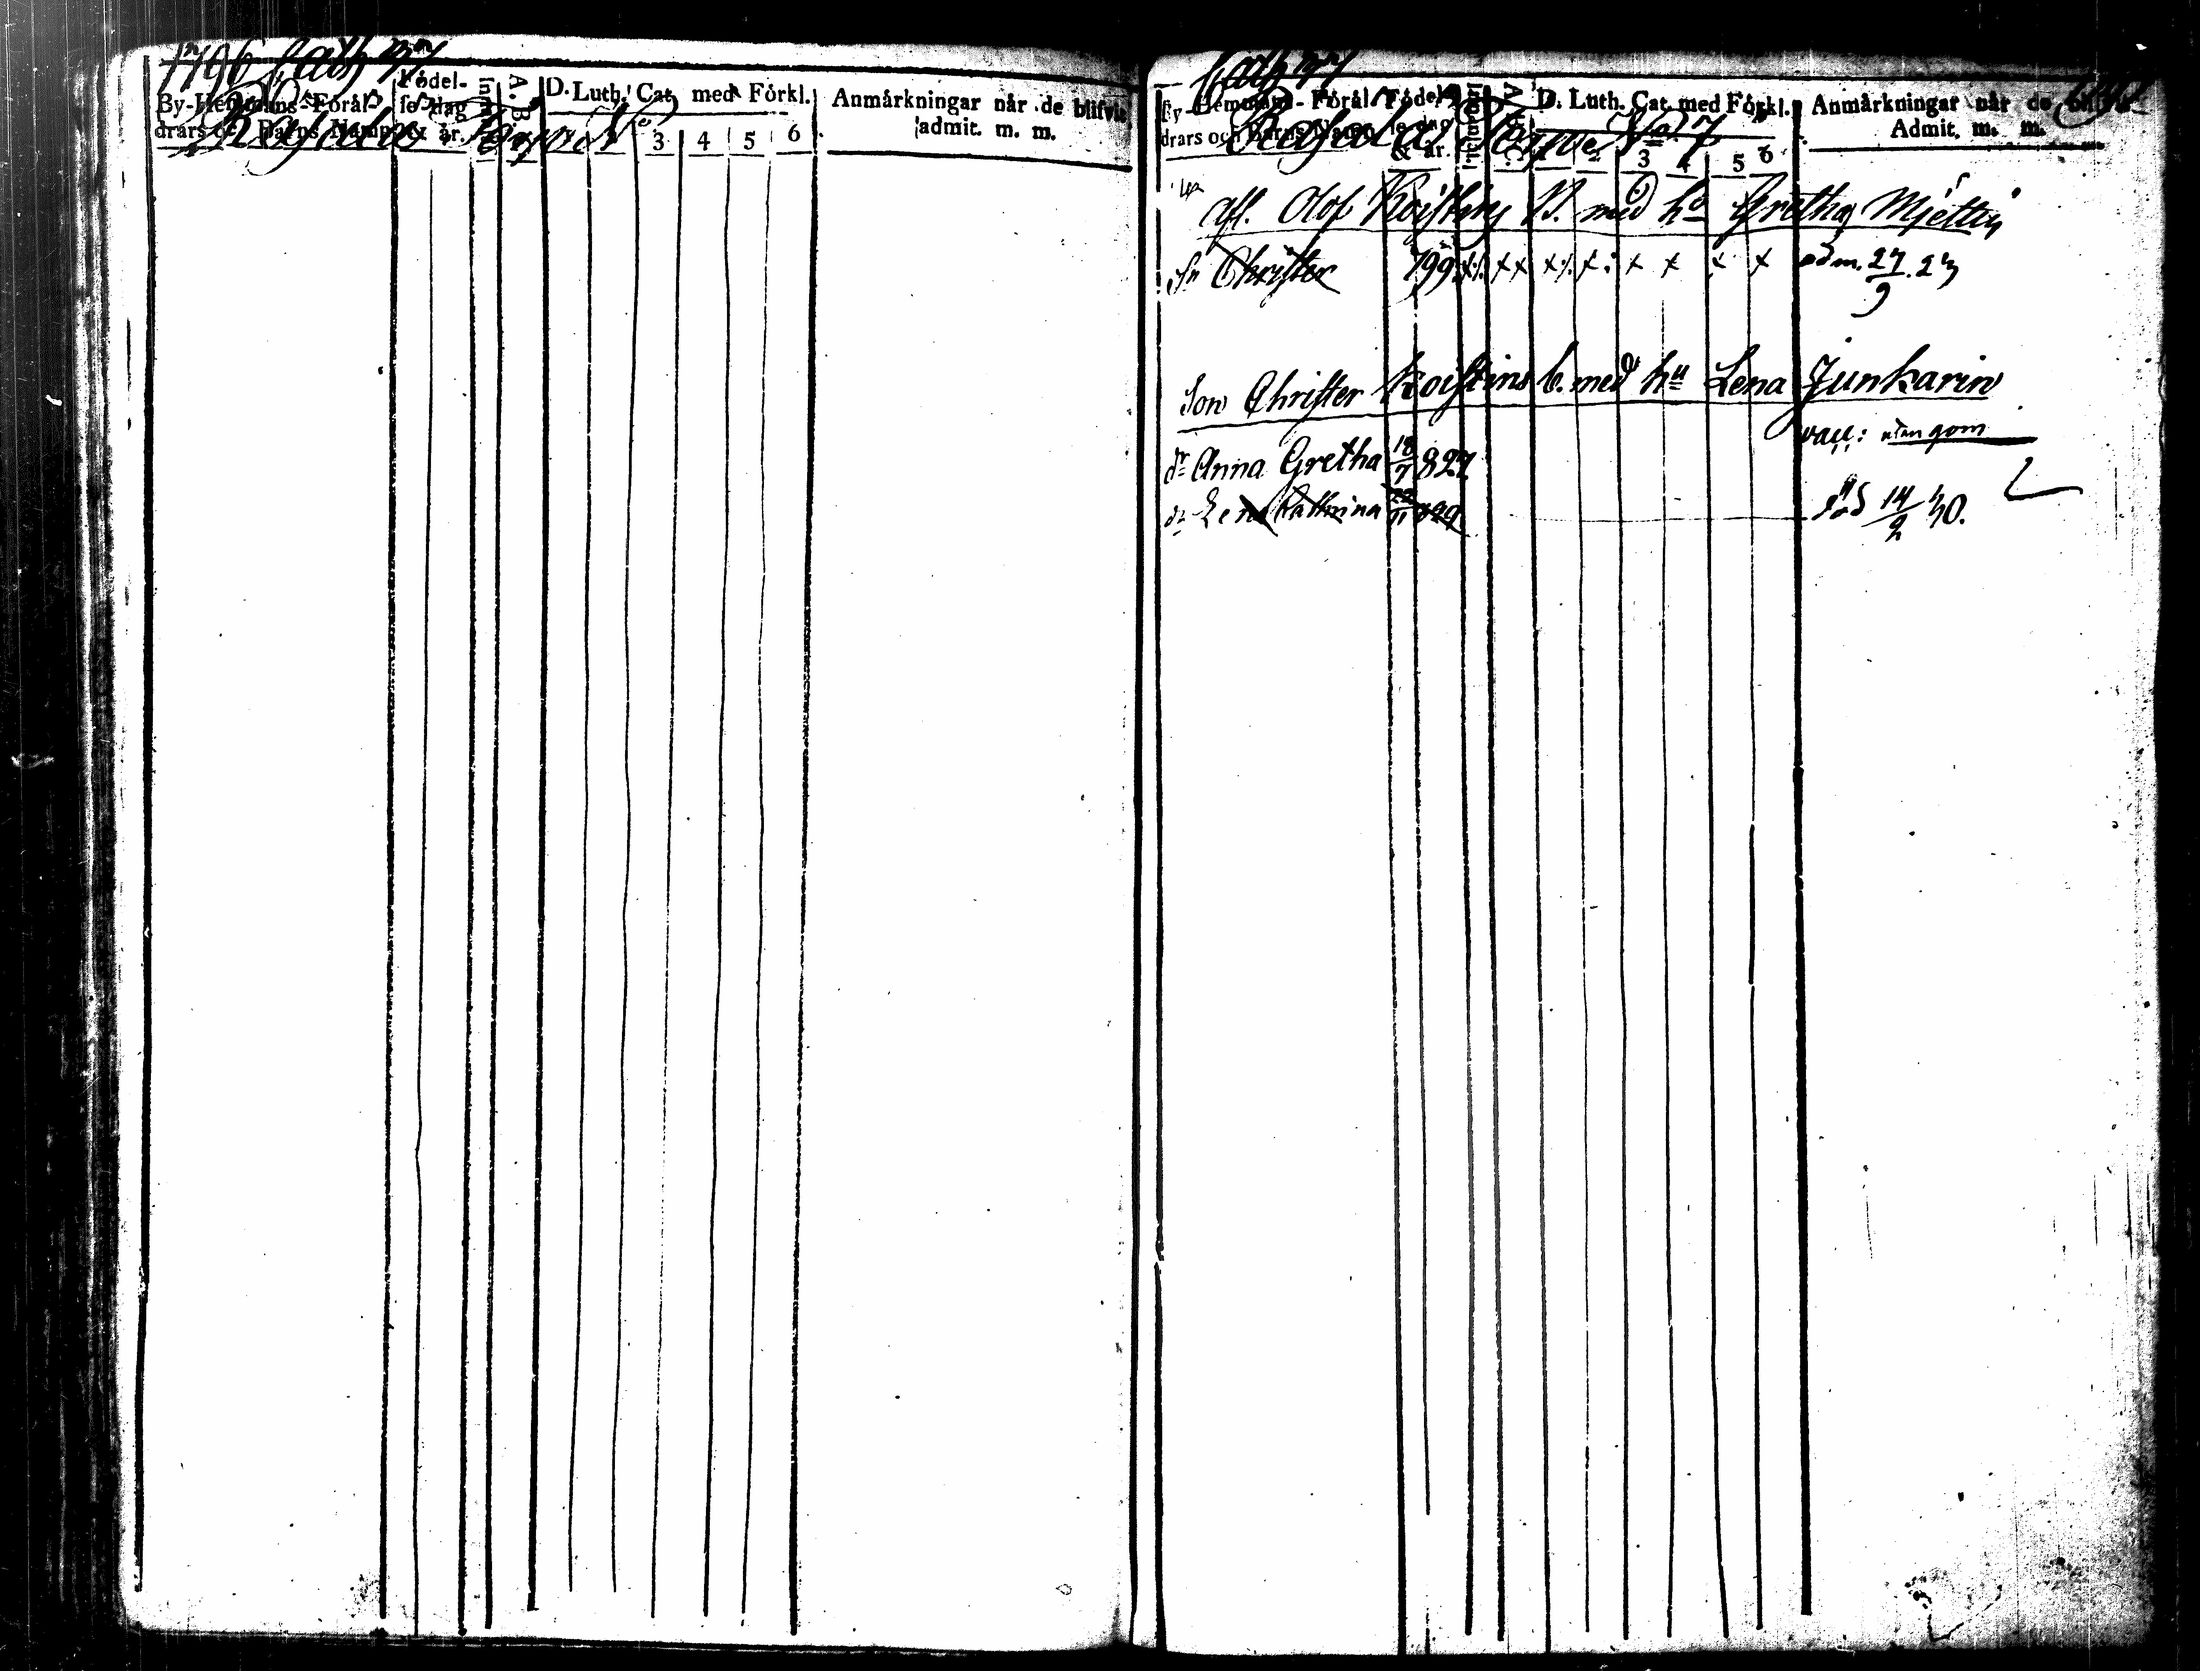 1796
By-Hemmans-Föräl-
drars och Barns Namn
Födel-
se-dag
& år.
A. B.
D. Luth. Cat. med Förkl.
3 4 5 6
Anmärkningar når de blifvit
admit. m. m.
By-Hemmans-Föräl-
drars och Barns Namn
Födel-
se-dag
& år.
D. Luth. Cat. med Förkl.
3 4 5 6
Anmärkningar når de blifvit
Admit. m. m.
No 7
afl. Olof Koistins B. med ho Gretha Mjettin
Sn Christer 799 adm. 27/9. 23
Son Christer Koistins b. med hu Lena Junkarin
vacc: utan gom
dr Anna Gretha 18/7 827
dr Lena Cathrina 22/11 829 död 14/2 30.